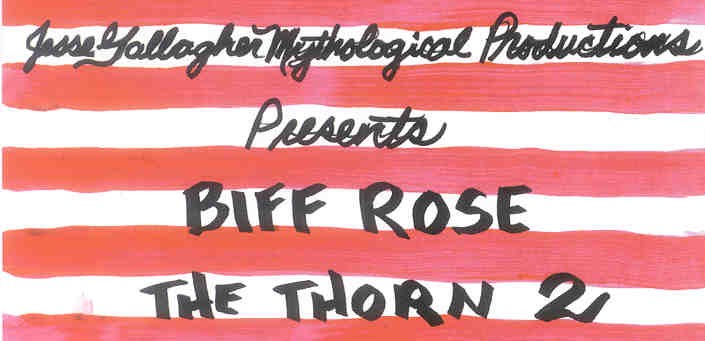 Jesse Gallagher Mythological Productions
Presents
BIFF ROSE
THE THORN 2